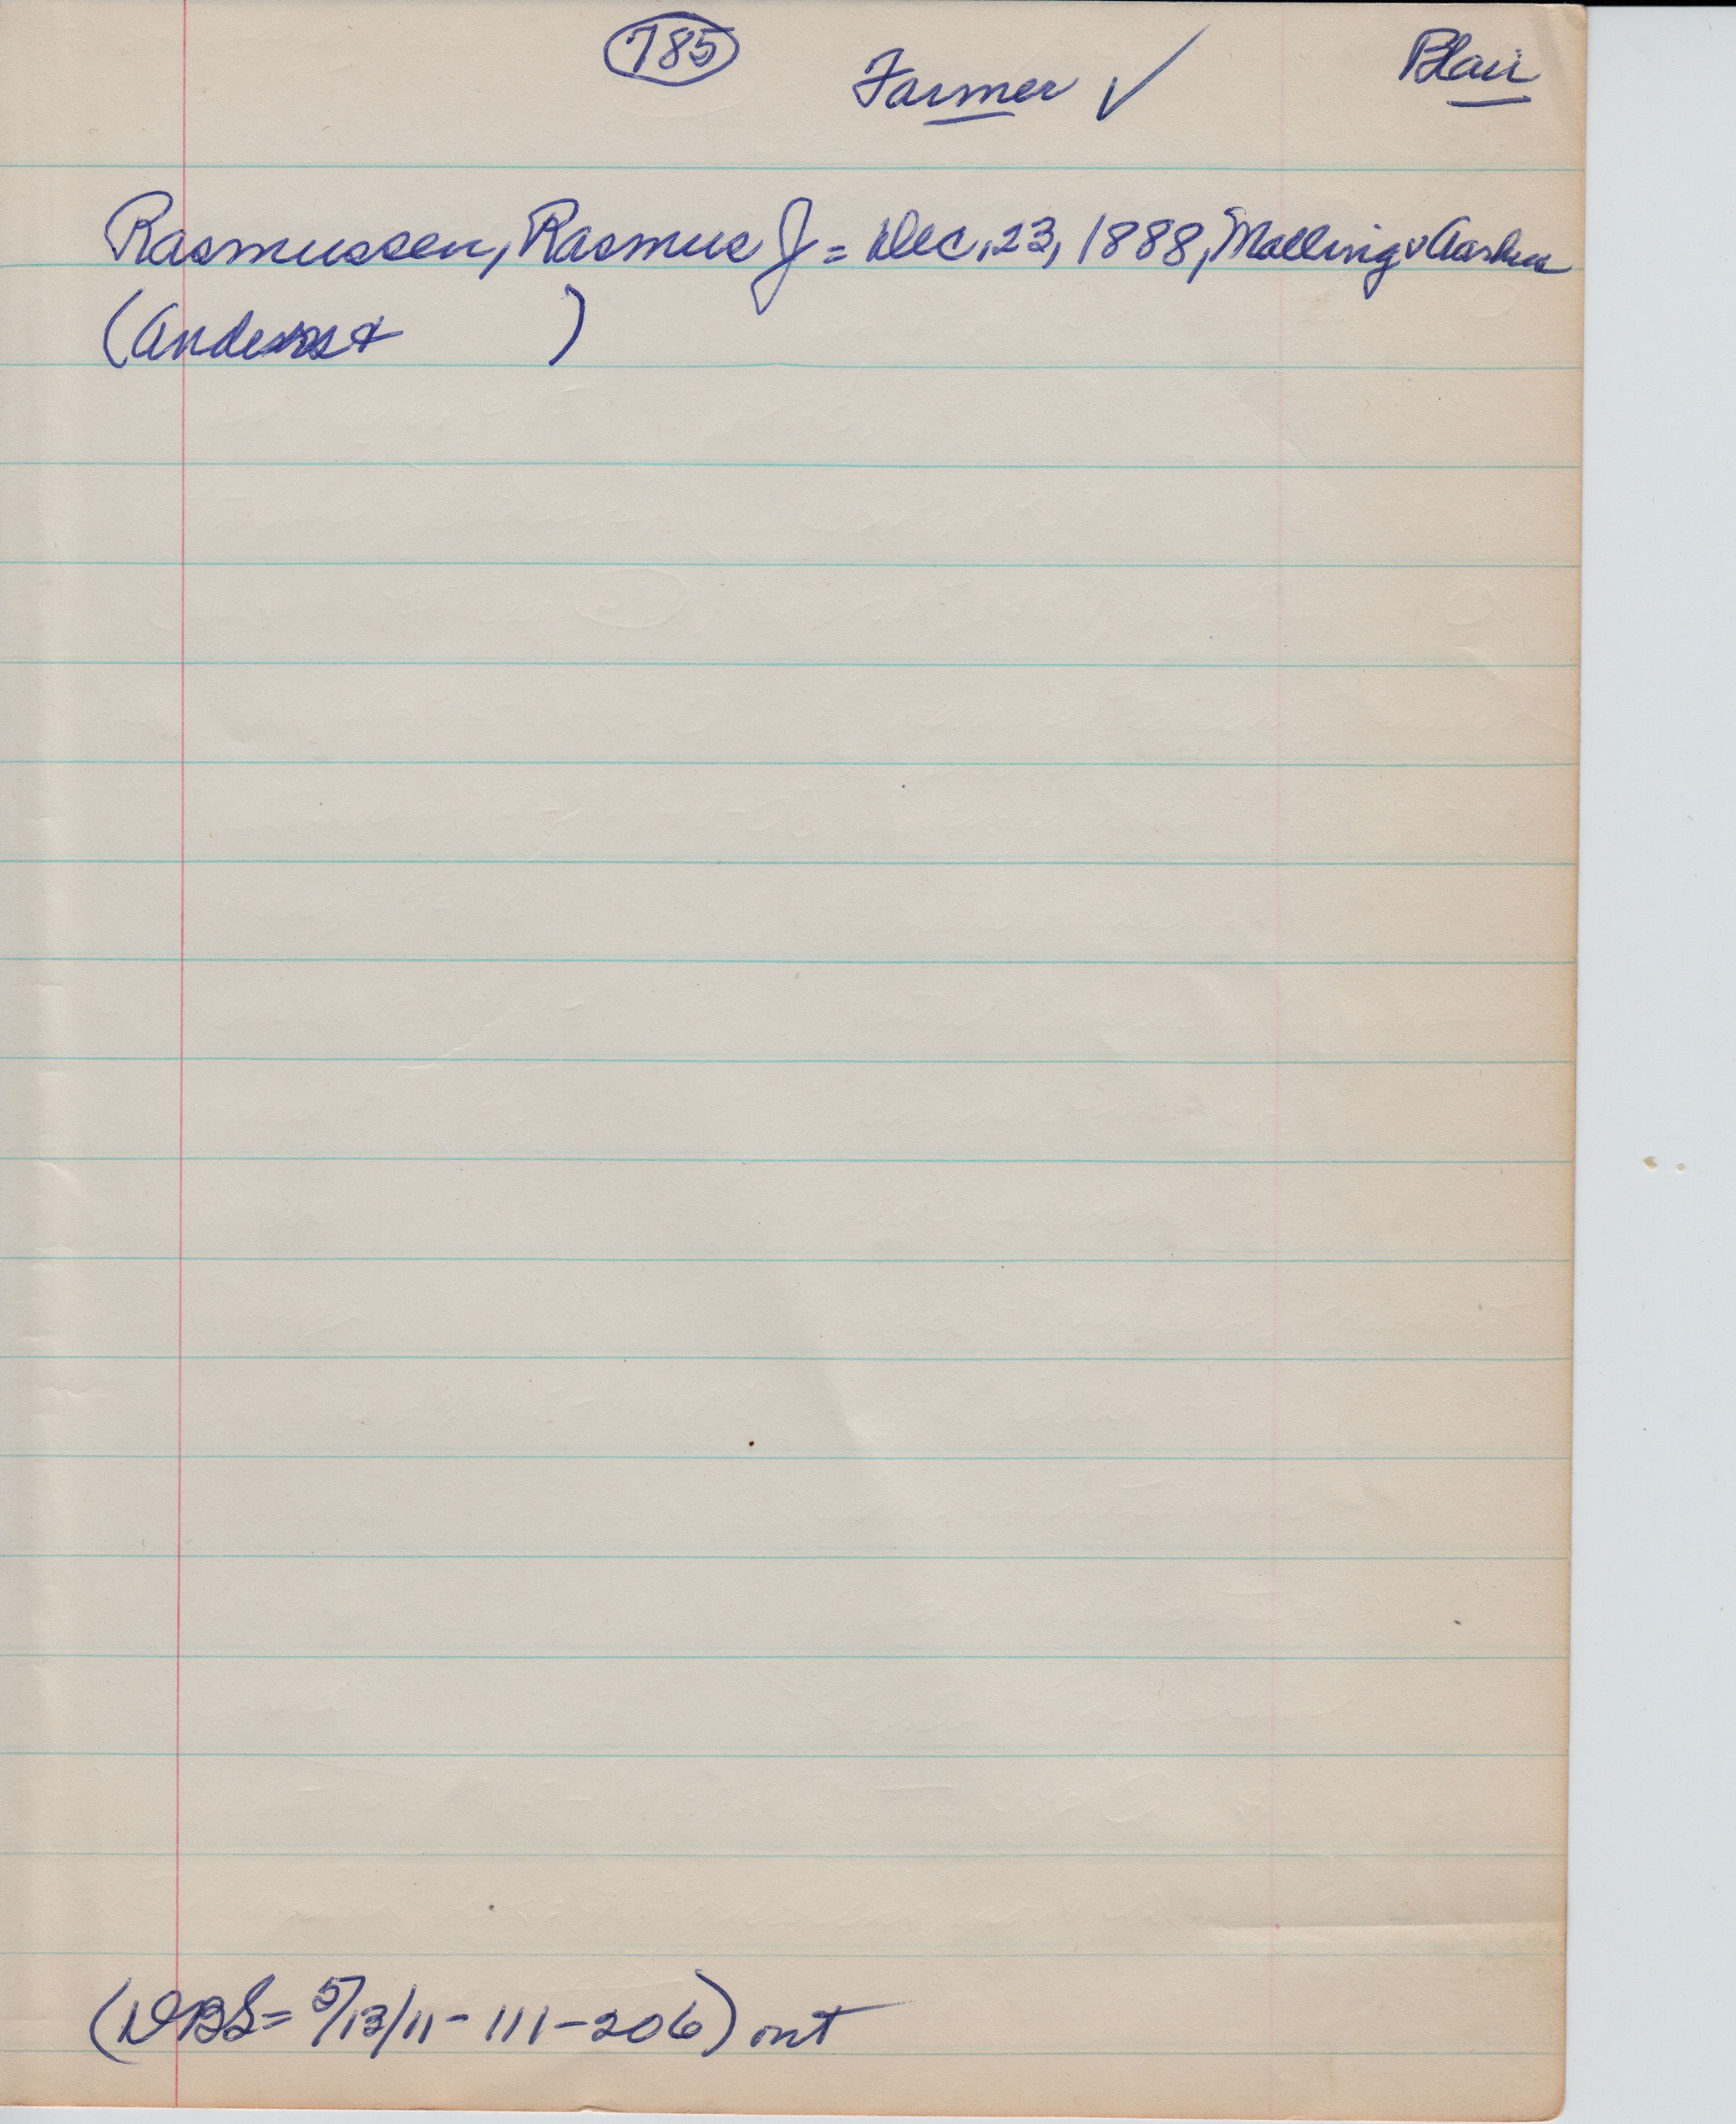 785 Farmer ✓ Blair
Rasmussen, Rasmus J = Dec. 23, 1888, Malling v Aarhus
(Anders + )
(DBS= 5/13/11 - 111 - 206) out